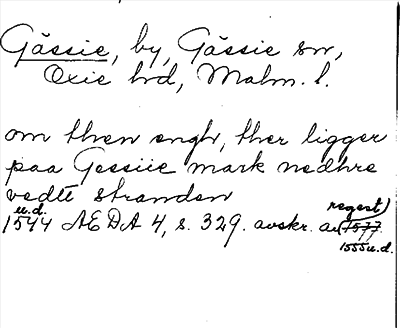 Gässie, by, Gässie sn,
Oxie hd, Malm. l.
om then engh, ther ligger
paa Gessiie mark nedhre
vedtt stranden
u.d. regest)
1544 AEDA 4, s. 329. avskr. av 1577
1555 u.d.